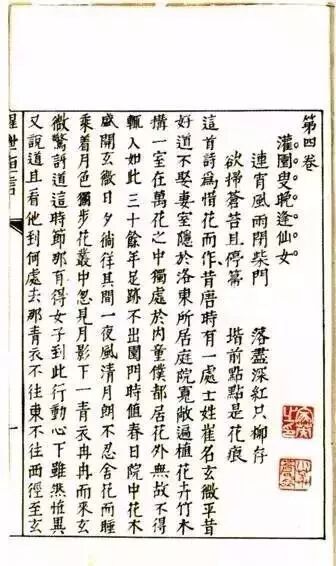 第四卷
灌園叟晚逢仙女
連宵風雨閉柴門 落盡深紅只柳存
欲掃蒼苔且停箒 堦前點點是花痕
這首詩爲惜花而作昔唐時有一處士姓崔名玄微平昔
好道不娶妻室隱於洛東所居庭院寬敞遍植花卉竹木
搆一室在萬花之中獨處於內童僕都居花外無故不得
輒入如此三十餘年足跡不出園門時值春日院中花木
盛開玄微日夕徜徉其間一夜風清月朗不忍舍花而睡
乘着月色獨步花叢中忽見月影下一青衣冉冉而來玄
微驚訝道這時節那有得女子到此行動心下雖然怪異
又說道且看他到何處去那青衣不往東不往西徑至玄
醒世恒言